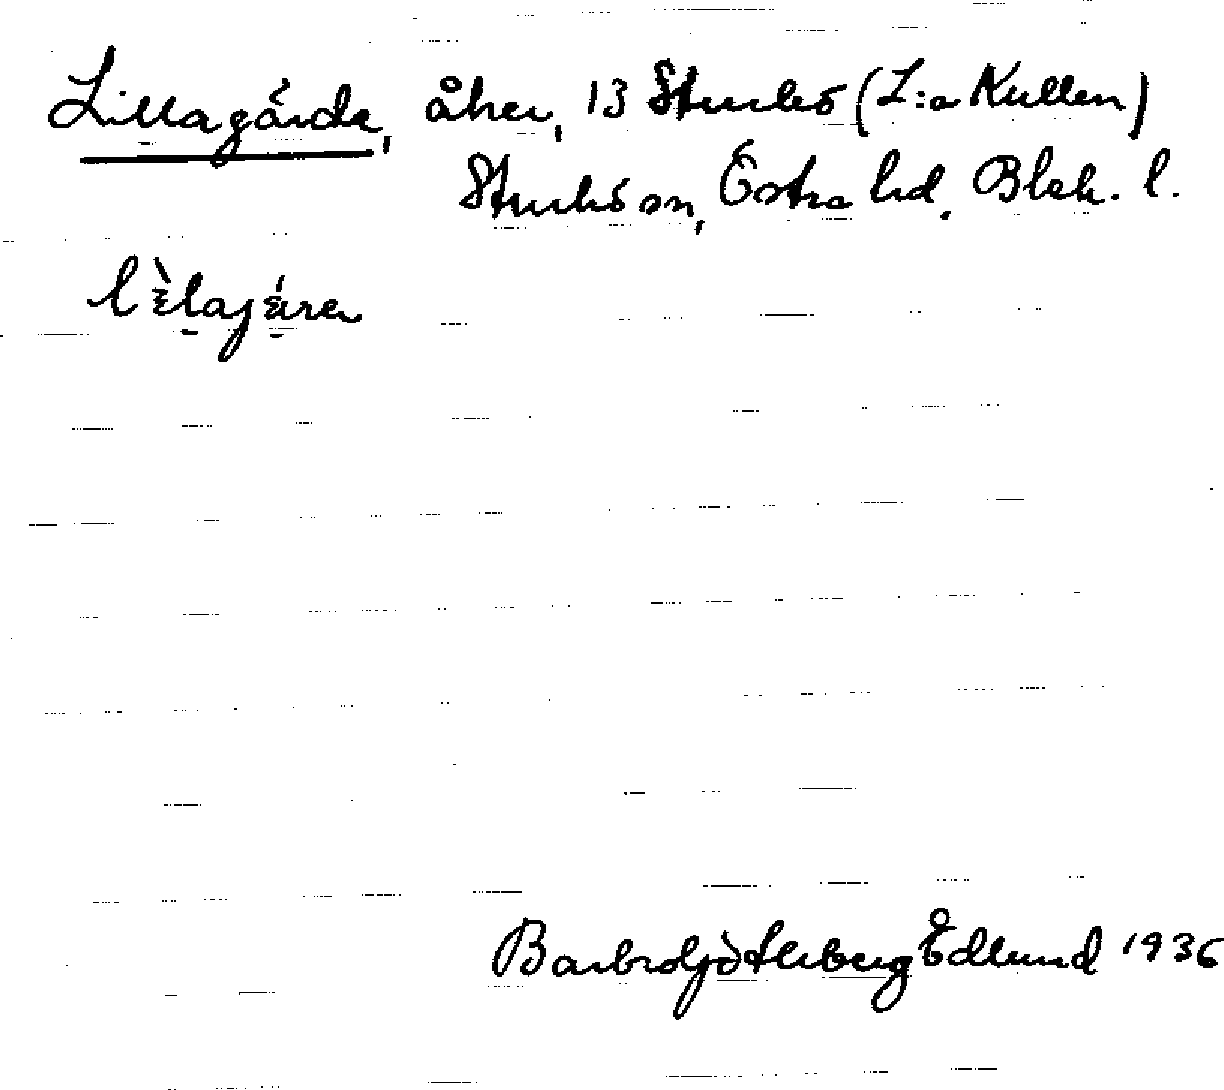 Lillagärde, åker, 13 Sturkö (L:a Kullen)
Sturkö sn, Östra hd, Blek. l.
Barbro Söderberg Edlund 1936